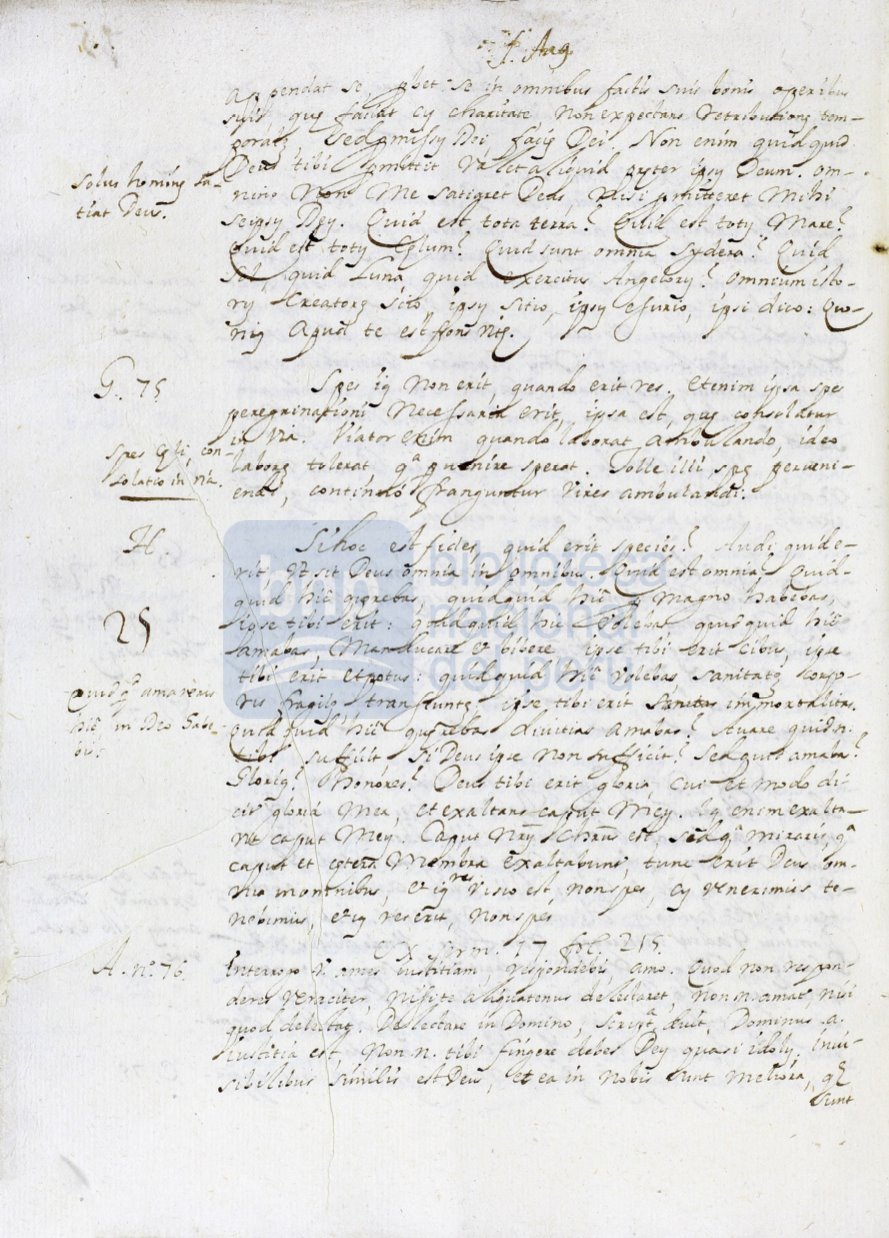 S. Aug.
appendat se, probet se in omnibus factis suis bonis operibus
suis quę faciat cũ charitate non expectans retributionẽ tem-
poralẽ, sed promissũ Dei, faciẽ Dei. Non enim quidquid
Deus tibi promittit valet aliquid pręter ipsũ Deum. Om-
nino non me satiaret Deus, nisi promitteret mihi
seipsũ Deũ. Quid est tota terra? Quid est totũ Mare?
Quid est totũ Cęlum? Quid sunt omnia sydera? Quid
Sol, quid Luna, quid exercitus Angelorũ? Omnium isto-
rũ Creatorẽ sitio, ipsũ sitio, ipsũ esurio, ipsi dico: Quo-
niã apud te est fons vitę.
Solus hominẽ sa-
tiat Deus.
G. 75
Spes iã non erit, quando erit res. Etenim ipsa spes
peregrinationi necessaria erit, ipsa est, quę consolatur
in via. Viator enim quando laborat ambulando, ideo
laborẽ tolerat qª pervenire sperat. Tolle illi spẽ perveni-
endi, continuò franguntur vires ambulandi.
Spes Cęli, con-
solatio in viã.
H.
25
Si hoc est fides quid erit species? Audi quid e-
rit. Ut sit Deus omnia in omnibus. Quid est omnia? Quid-
quid hìc quęrebas, quidquid hìc pro magno habebas,
ipse tibi erit: quidquid hìc volebas quidquid hìc
amabas, Manducare & bibere ipse tibi erit cibus, ipse
tibi erit et potus: quidquid hìc volebas sanitatẽ corpo-
ris fragilẽ transeuntẽ ipse tibi erit Sanitas immortalitas.
Quidquid hìc quęrebas divitias amabas? Avare quid n.
tibi sufficit si Deus ipse non sufficit? Sed quid amabas?
Gloriã? Honores? Deus tibi erit gloria, cui et modo di
citr gloria mea, et exaltans caput meũ. Iã enim exalta-
vit caput meũ. Caput nrũ Chrũs est, sed qª miraris qª
caput et cętera membra exaltabunt, tunc erit Deus om-
nia in omnibus, & iã res visio est, non spes, cũ venerimus te-
nebimus, & iã res erit, non spes
Quidqd amaveris
hìc, in Deo habe-
bis.
Ex serm. 17 fol. 215.
A. nº. 76.
Interrogo v. ames iustitiam, respondebis, amo. Quod non respon-
deres veraciter, nisi te aliquatenus delectaret, non n. amatr nisi
quod delectat: Delectare in Domino, Scriptª dixit, Dominus a.
iustitia est. Non n. tibi fingere debes Deũ quasi idolũ. Invi-
sibilibus similis est Deus, et ea in nobis sunt meliora, quę
sunt